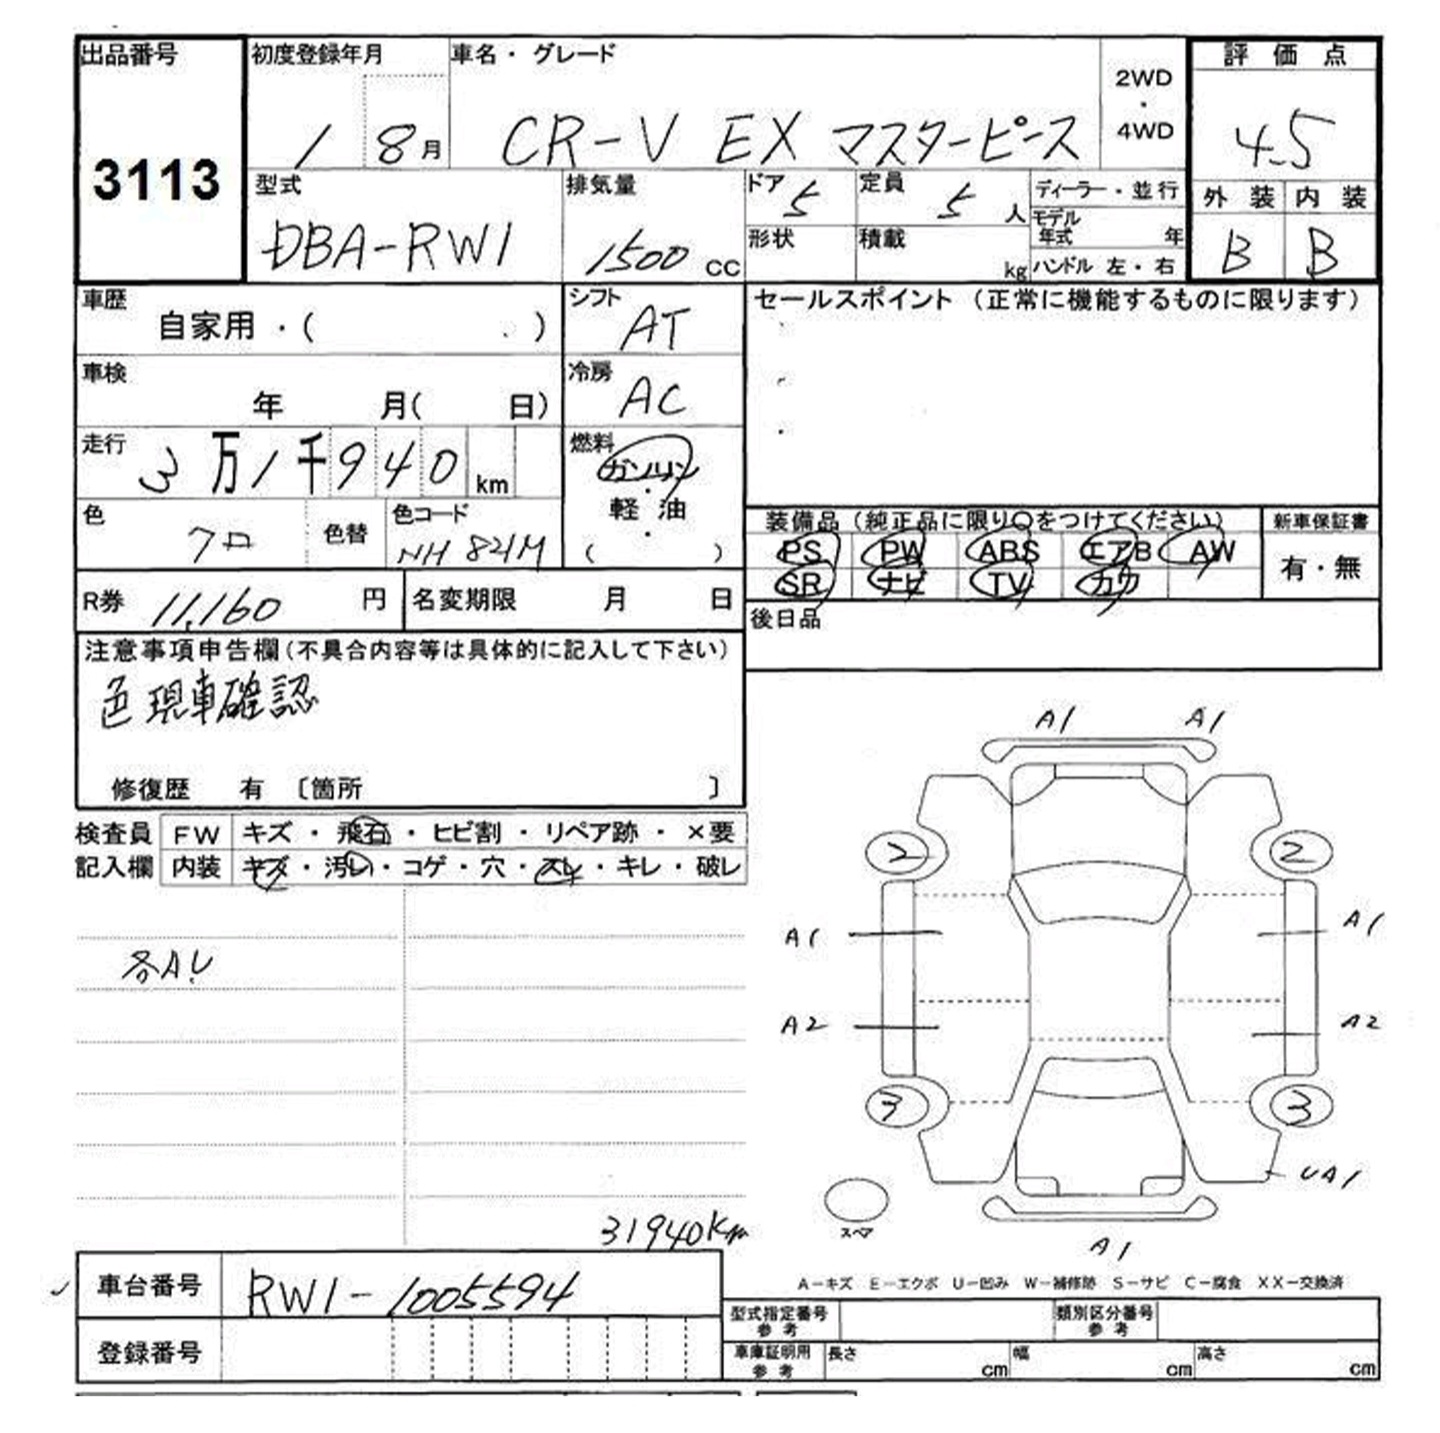 出品番号 初度登録年月 車名・グレード 2WD・4WD 評価点
3113 1 8月 CR-V EX マスターピース 4.5
型式 排気量 ドア 5 定員 5人 ディーラー・並行 外装 内装
DBA-RW1 1500cc 形状 積載 kg モデル年式 年 B B
ハンドル 左・右
車歴 自家用・( ) シフト AT セールスポイント (正常に機能するものに限ります)
車検 年 月( 日) 冷房 AC
走行 3万1千940km 燃料 ガソリン・軽油・( )
色 クロ 色替 色コード NH 821M
装備品 (純正品に限り○をつけてください) 新車保証書
PS PW ABS エアB AW 有・無
SR ナビ TV カワ
R券 11,160円 名変期限 月 日 後日品
注意事項申告欄(不具合内容等は具体的に記入して下さい)
色現車確認
修復歴 有 〔箇所 〕
検査員 FW キズ・飛石・ヒビ割・リペア跡・×要
記入欄 内装 キズ・汚レ・コゲ・穴・スレ・キレ・破レ
各A.U
A1 A1
2 2
A1 A1
A2 A2
3 3
UA1
スペア
A1
31940Km
A−キズ E−エクボ U−凹み W−補修跡 S−サビ C−腐食 XX−交換済
車台番号 RW1-1005594
型式指定番号参考 類別区分番号参考
登録番号
車庫証明用参考 長さ cm 幅 cm 高さ cm